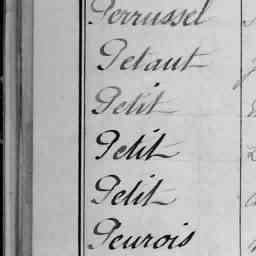 Perrussel
Petaut
Petit
Petit
Petit
Peurois